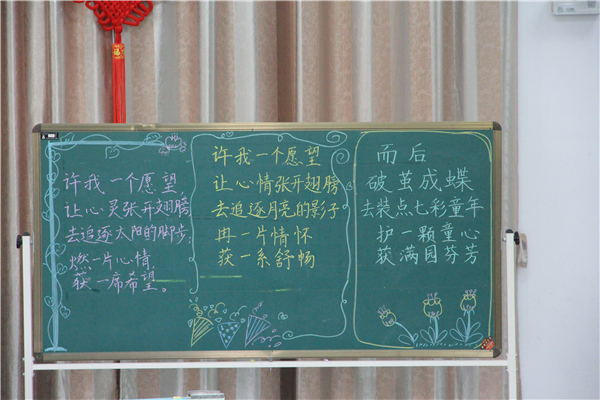 许我一个愿望
让心灵张开翅膀
去追逐太阳的脚步,
燃一片心情,
获一席希望。
许我一个愿望
让心情张开翅膀
去追逐月亮的影子
冉一片情怀
获一系舒畅
而后
破茧成蝶
去装点七彩童年
护一颗童心
获满园芬芳